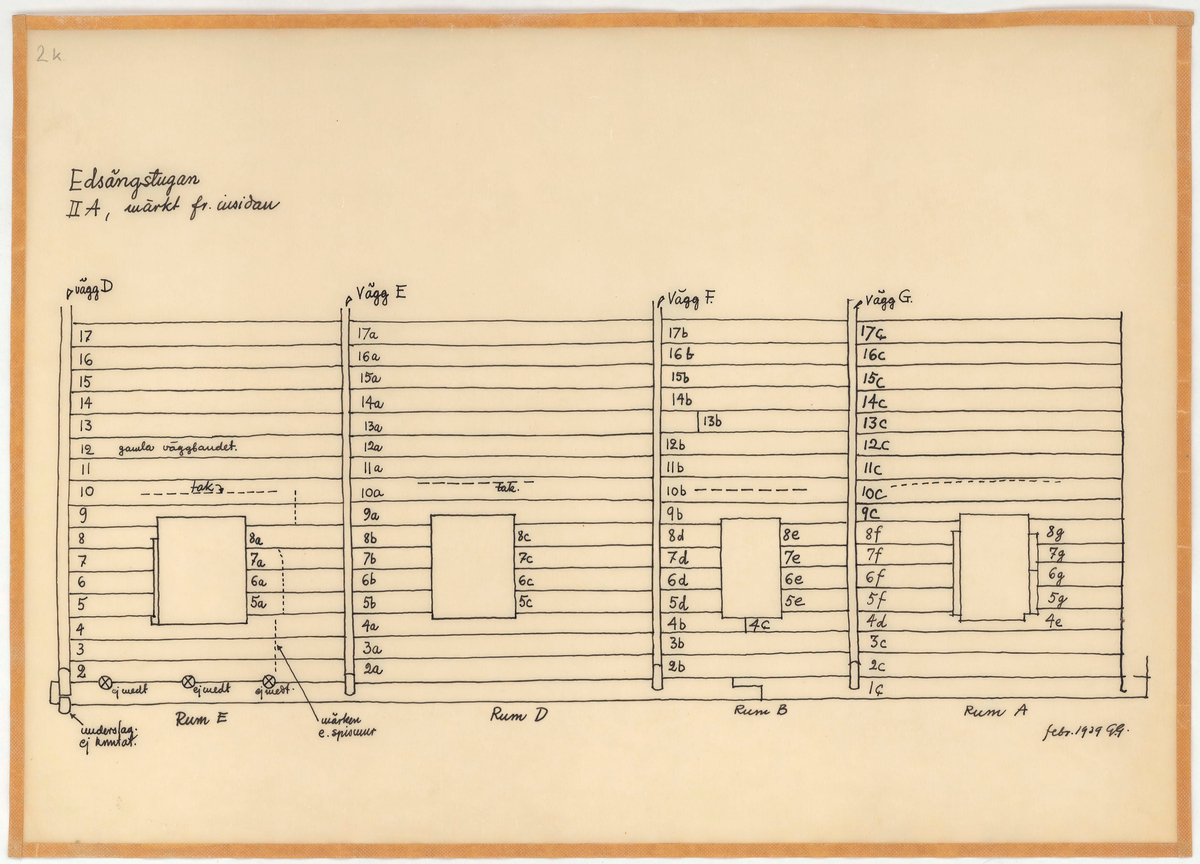 2k
Edsängstugan
II A, märkt fr. insidan
vägg D
Vägg E
Vägg F.
Vägg G.
17 17a 17b 17c
16 16a 16b 16c
15 15a 15b 15c
14 14a 14b 14c
13 13a 13b 13c
12 gamla väggbandet. 12a 12b 12c
11 11a 11b 11c
10 tak 10a tak. 10b 10c
9 9a 9b 9c
8 8a 8b 8c 8d 8e 8f 8g
7 7a 7b 7c 7d 7e 7f 7g
6 6a 6b 6c 6d 6e 6f 6g
5 5a 5b 5c 5d 5e 5f 5g
4 4a 4b 4c 4d 4e
3 3a 3b 3c
2 2a 2b 2c
ej medt ej medt ej medt. 1c
Rum E
Rum D
Rum B
Rum A
underslag.
ej
märken
e. spismur
febr. 1939 G.G.